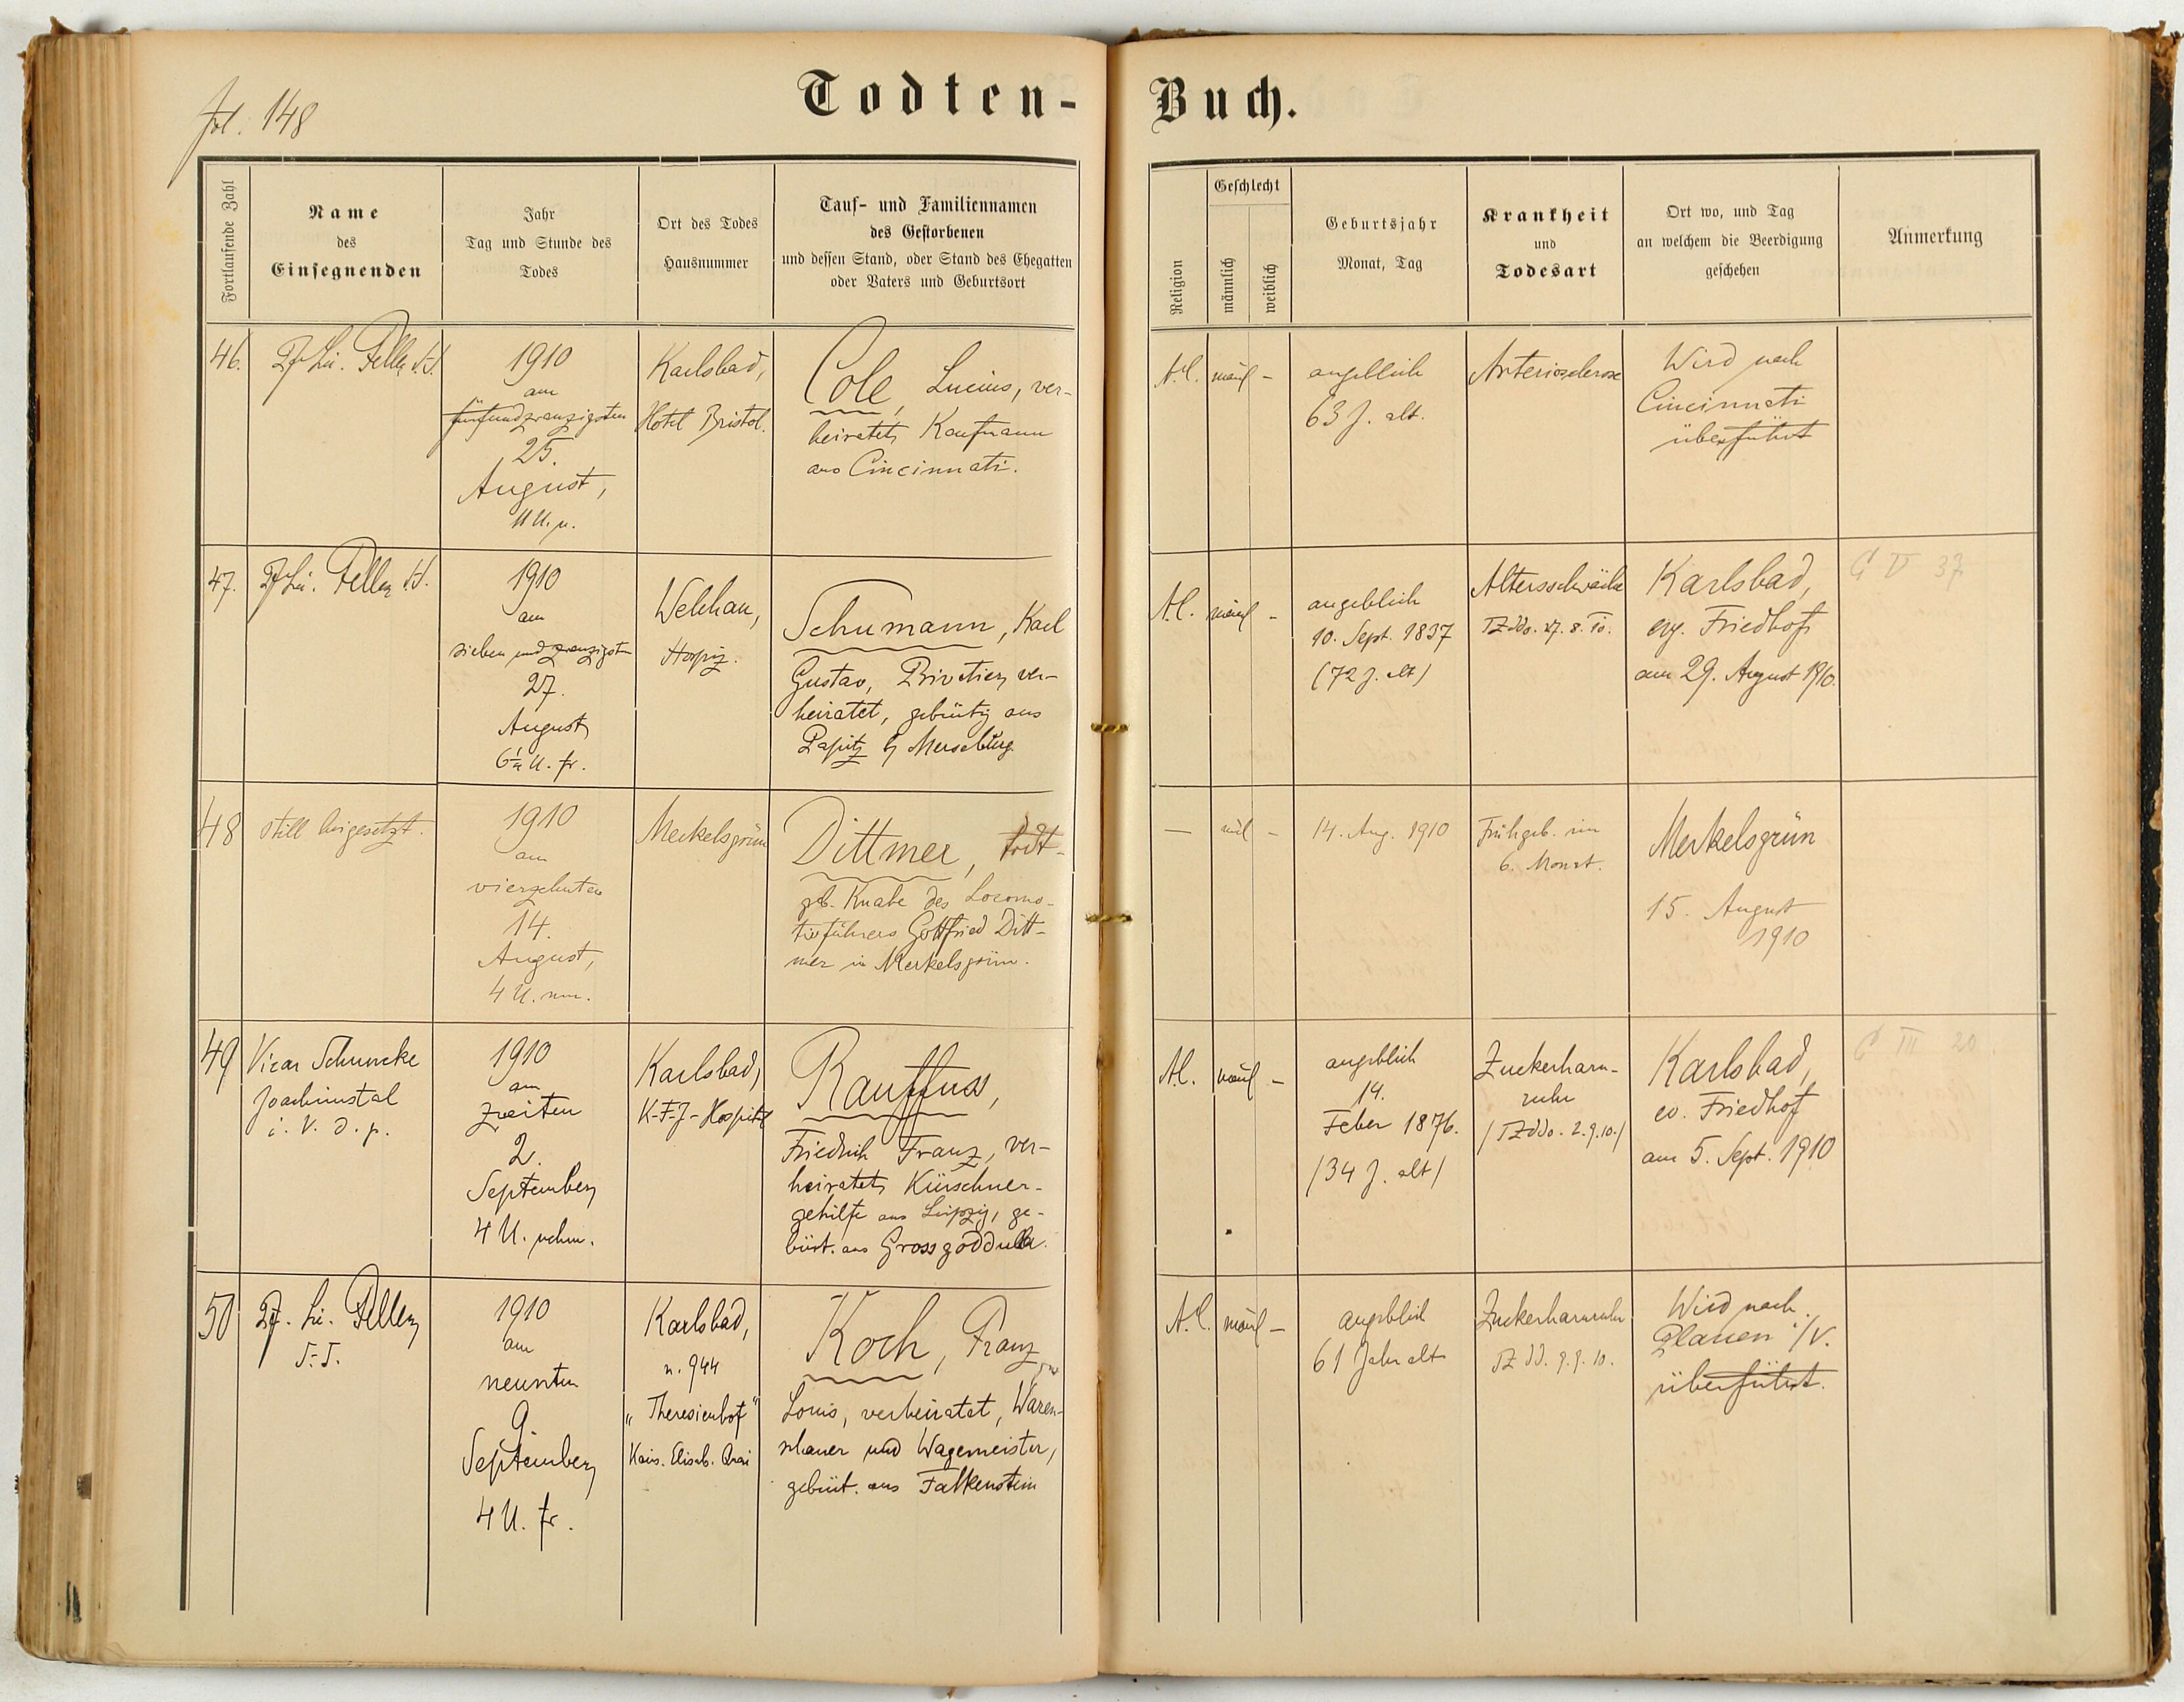 fol. 148
Todten-Buch.
Fortlaufende Zahl
Name
des
Einsegnenden
Jahr
Tag und Stunde des
Todes
Ort des Todes
Hausnummer
Tauf- und Familiennamen
des Gestorbenen
und dessen Stand, oder Stand des Ehegatten
oder Vaters und Geburtsort
Religion
Geschlecht
männlich
weiblich
Geburtsjahr
Monat, Tag
Krankheit
und
Todesart
Ort wo, und Tag
an welchem die Beerdigung
geschehen
Anmerkung
46.
Pf. Lic. Feller
1910
am
fünfundzwanzigsten
25.
August,
11 U.
Karlsbad,
Hotel Bristol.
Cole, Lucius, ver-
heiratet, Kaufmann
aus Cincinnati.
A.C.
männl
-
angeblich
63 J. alt.
Arteriosclerose
Wird nach
Cincinnati
überführt
47.
Pf. Lic. Feller
1910
am
siebenundzwanzigsten
27.
August
6½ U. fr.
Wehhau,
Hospiz.
Schumann, Karl
Gustav, Privatier, ver-
heiratet, gebürtig aus
Papitz b/ Merseburg
A.C.
männl
-
angeblich
10. Sept. 1837
(72 J. alt)
Altersschwäche
TZ ddo. 27. 8. 10.
Karlsbad,
evg. Friedhof
am 29. August 1910.
G V 37
48
still beigesetzt.
1910
am
vierzehnten
14.
August,
4 U. nm.
Merkelsgrün
Dittmer, todt-
geb. Knabe des Locomo-
tivführers Gottfried Ditt-
mer in Merkelsgrün.
—
ml
-
14. Aug. 1910
Frühgeb. im
6. Monat.
Merkelsgrün
15. August
1910
49
Vicar Schuncke
Joachimstal
i. V. d. p.
1910
am
zweiten
2.
September,
4 U. nchm.
Karlsbad,
K-F-J-Hospital
Rauffuss,
Friedrich Franz, ver-
heiratet, Kürschner-
gehilfe aus Leipzig, ge-
bürt. aus Grossgoddula.
A.C.
männl
-
angeblich
14.
Feber 1876.
(34 J. alt)
Zuckerharn-
ruhr
(TZ ddo. 2.9.10.)
Karlsbad,
ev. Friedhof
am 5. Sept. 1910
G III 20.
50
Pf. Lic. Feller
1910
am
neunten
9.
September,
4 U. fr.
Karlsbad,
n. 944
"Theresienhof"
Kais. Elisab. Quai
Koch, Franz
Louis, verheiratet, Waren-
schauer und Wagemeister,
gebürt. aus Falkenstein
A.C.
männl
-
angeblich
61 Jahr alt
Zuckerharnruhr
TZ dd. 9.9.10.
Wird nach
Plauen i/V.
überführt.